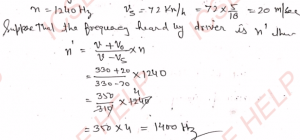 n = 1240 Hz   Vs = 72 Km/h = 72 × 5/18 = 20 m/sec
Suppose that the frequency heard by driver is n' then
n' = V + Vo / V - Vs × n
= 330 + 20 / 330 - 20 × 1240
= 350 / 310 × 1240 4
= 350 × 4 = 1400 Hz